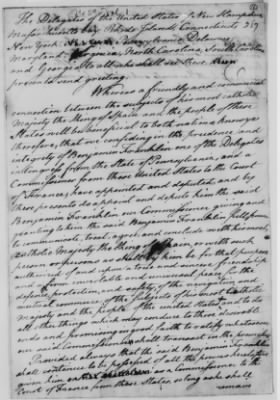 The Delegates of the United States of New Hampshire
Massachusetts bay Rhode Island, Connecticut
New York Pennsylvania Delaware
Maryland Virginia, North Carolina, South Carolina
and Georgia, To all who shall see these
presents send greeting.
Whereas a friendly and commercial
connection between the subjects of his most catholic
Majesty the King of Spain and the people of these
States will be beneficial to both nations, know ye
therefore, that we confiding in the prudence and
integrity of Benjamin Franklin one of the Delegates
in Congress from the State of Pennsylvania, and a
Commissioner from these United States to the Court
of France, have appointed and deputed, and by
these presents do appoint and depute him the said
Benjamin Franklin our Commissioner, giving and
granting to him the said Benjamin Franklin full power
to communicate, treat, agree and conclude with his most
catholic Majesty the King of Spain, or with such
person or persons as shall by him be for that purpose
authorized, of and upon a true and sincere friendship
and a firm, inviolable and universal peace, for the
defence, protection, and safety of the navigation and
mutual commerce of the subjects of his most catholic
majesty and the people of the United States, and to do
all other things which may conduce to those desirable
ends and promising in good faith to ratify whatsoever
our said Commissioner shall transact in the premises
Provided always that the said Benjamin Franklin
shall continue to be possessed of all the powers heretofore
given him as a Commissioner to the
Court of France from these States, so long as he shall
remain